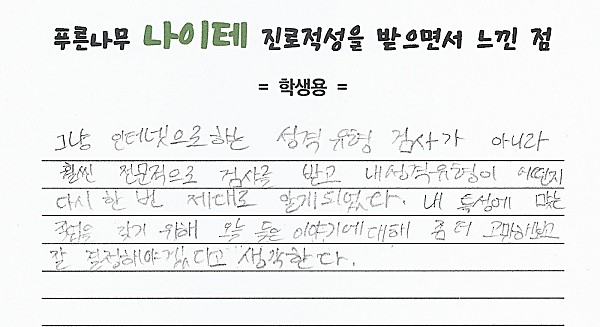 푸른나무 나이테 진로적성을 받으면서 느낀 점
= 학생용 =
그냥 인터넷으로하는 성격유형 검사가 아니라
훨씬 전문적으로 검사를 받고 내성격유형이 어떤지
다시 한 번 제대로 알게되었다. 내 특성에 맞는
직업을 갖기 위해 오늘 들은 이야기에대해 좀 더 고민해보고
잘 결정해야겠다고 생각한다.